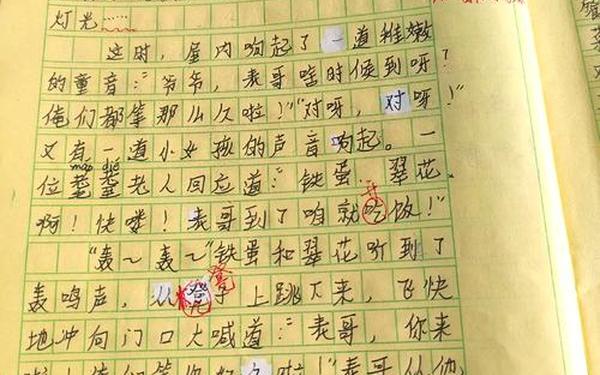 灯光……
这时，屋内响起了一道稚嫩
的童音："爷爷，表哥啥时候到呀？
俺们都等那么久啦！""对呀，对呀！"
又有一道小女孩的声音响起。一
mào dié
位耄耋老人回应道："铁蛋、翠花
开
啊！快喽！表哥到了咱就吃饭！"
"轰～轰～"铁蛋和翠花听到了
凳
轰鸣声，从凳子上跳下来，飞快
地冲向门口大喊道："表哥，你来
啦！俺们等你好久啦！"表哥从他